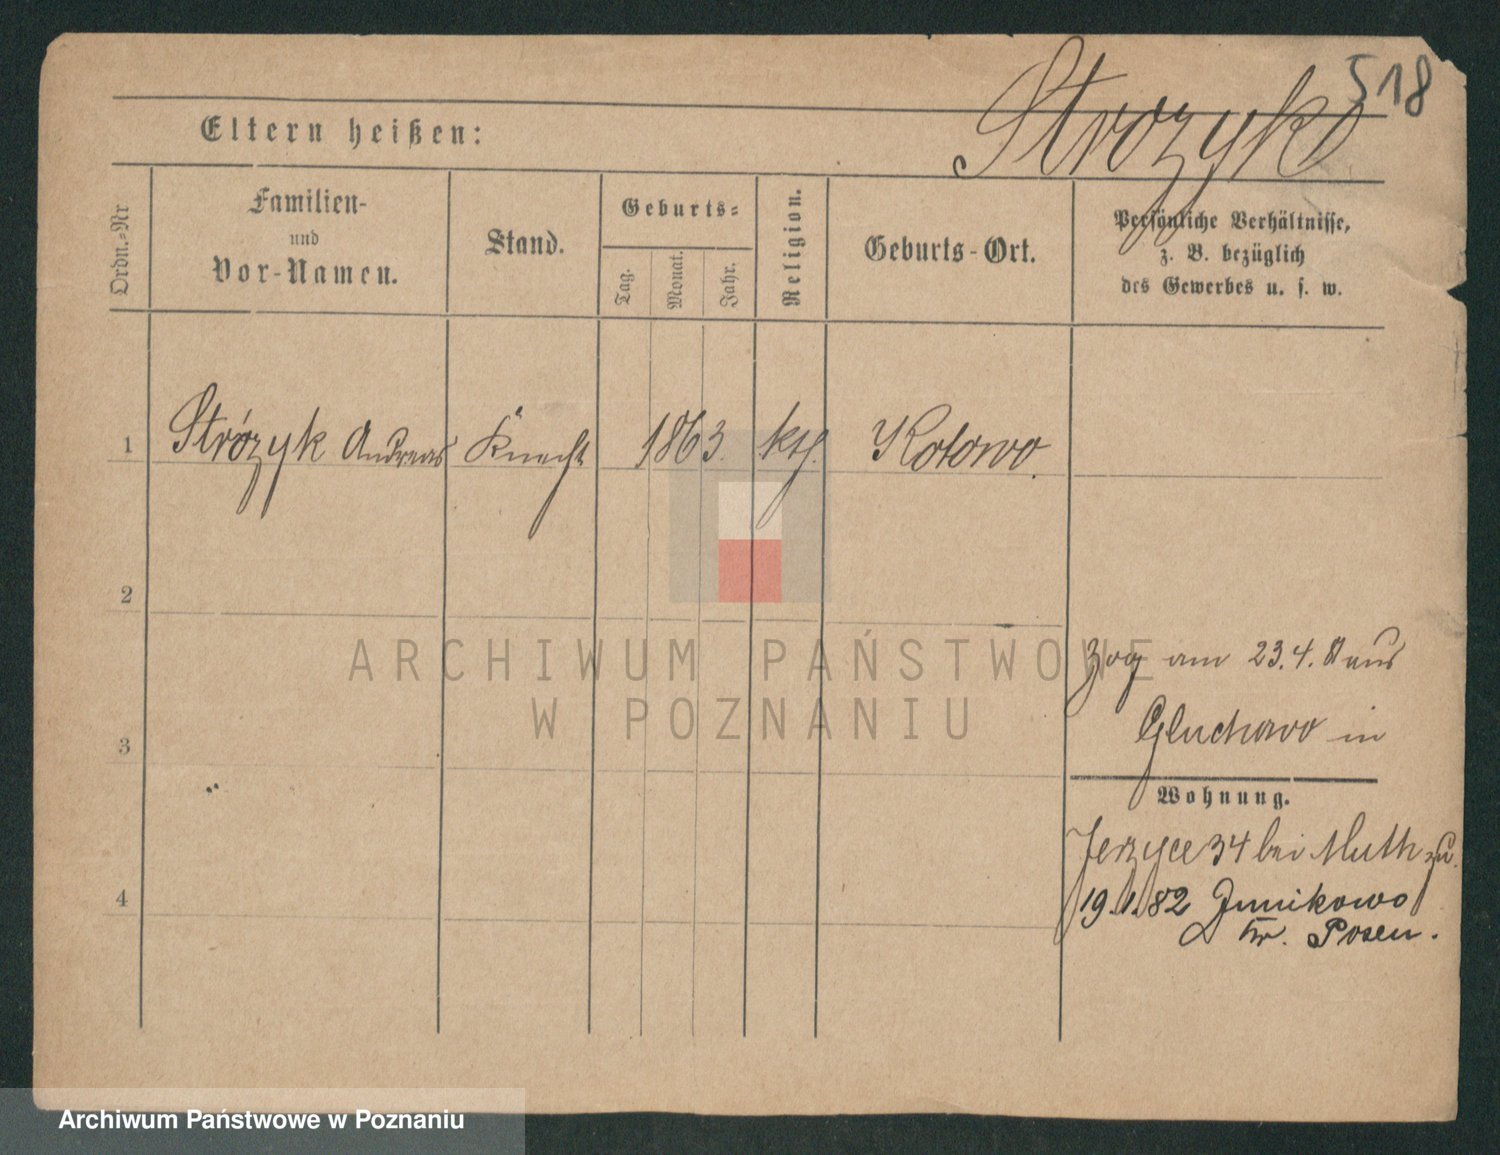 518
Strozyk
Eltern heißen:
Ordn.-Nr
Familien-
und
Vor-Namen.
Stand.
Geburts-
Tag.
Monat.
Jahr.
Religion.
Geburts-Ort.
Persönliche Verhältnisse,
z. B. bezüglich
des Gewerbes u. s. w.
1 Strózyk Andreas Knecht 1863. kth. Kotowo.
2
3
4
Zog am 23.4. 81 aus
Gluchowo in
Wohnung.
Jerzyce 34 bei Muth
19.1.82 Junikowo
Kr. Posen.
ARCHIWUM PAŃSTWOWE
W POZNANIU
Archiwum Państwowe w Poznaniu